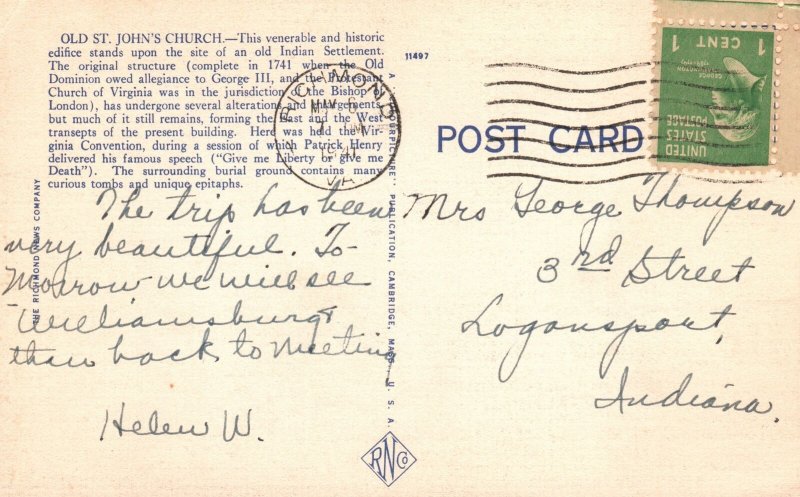 OLD ST. JOHN'S CHURCH.—This venerable and historic
edifice stands upon the site of an old Indian Settlement.
The original structure (complete in 1741 when the Old
Dominion owed allegiance to George III, and the Protestant
Church of Virginia was in the jurisdiction of the Bishop of
London), has undergone several alterations and enlargements,
but much of it still remains, forming the East and the West
transepts of the present building. Here was held the Vir-
ginia Convention, during a session of which Patrick Henry
delivered his famous speech ("Give me Liberty or give me
Death"). The surrounding burial ground contains many
curious tombs and unique epitaphs.
THE RICHMOND NEWS COMPANY
The trip has been
very beautiful. To-
Morrow we will see
Williamsburg &
then back to Meeting
Helen W.
11497
PUBLICATION, CAMBRIDGE, MASS., U. S. A.
RICHMOND
6
1941
VA
POST CARD
1 CENT 1
UNITED
STATES
POSTAGE
Mrs George Thompson
3rd Street
Logansport,
Indiana.
RNCo